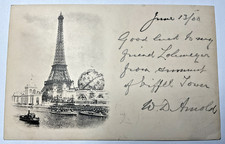 June 13/00
Good luck to my
friend
from summit
of Eiffel Tower
W D Arnold